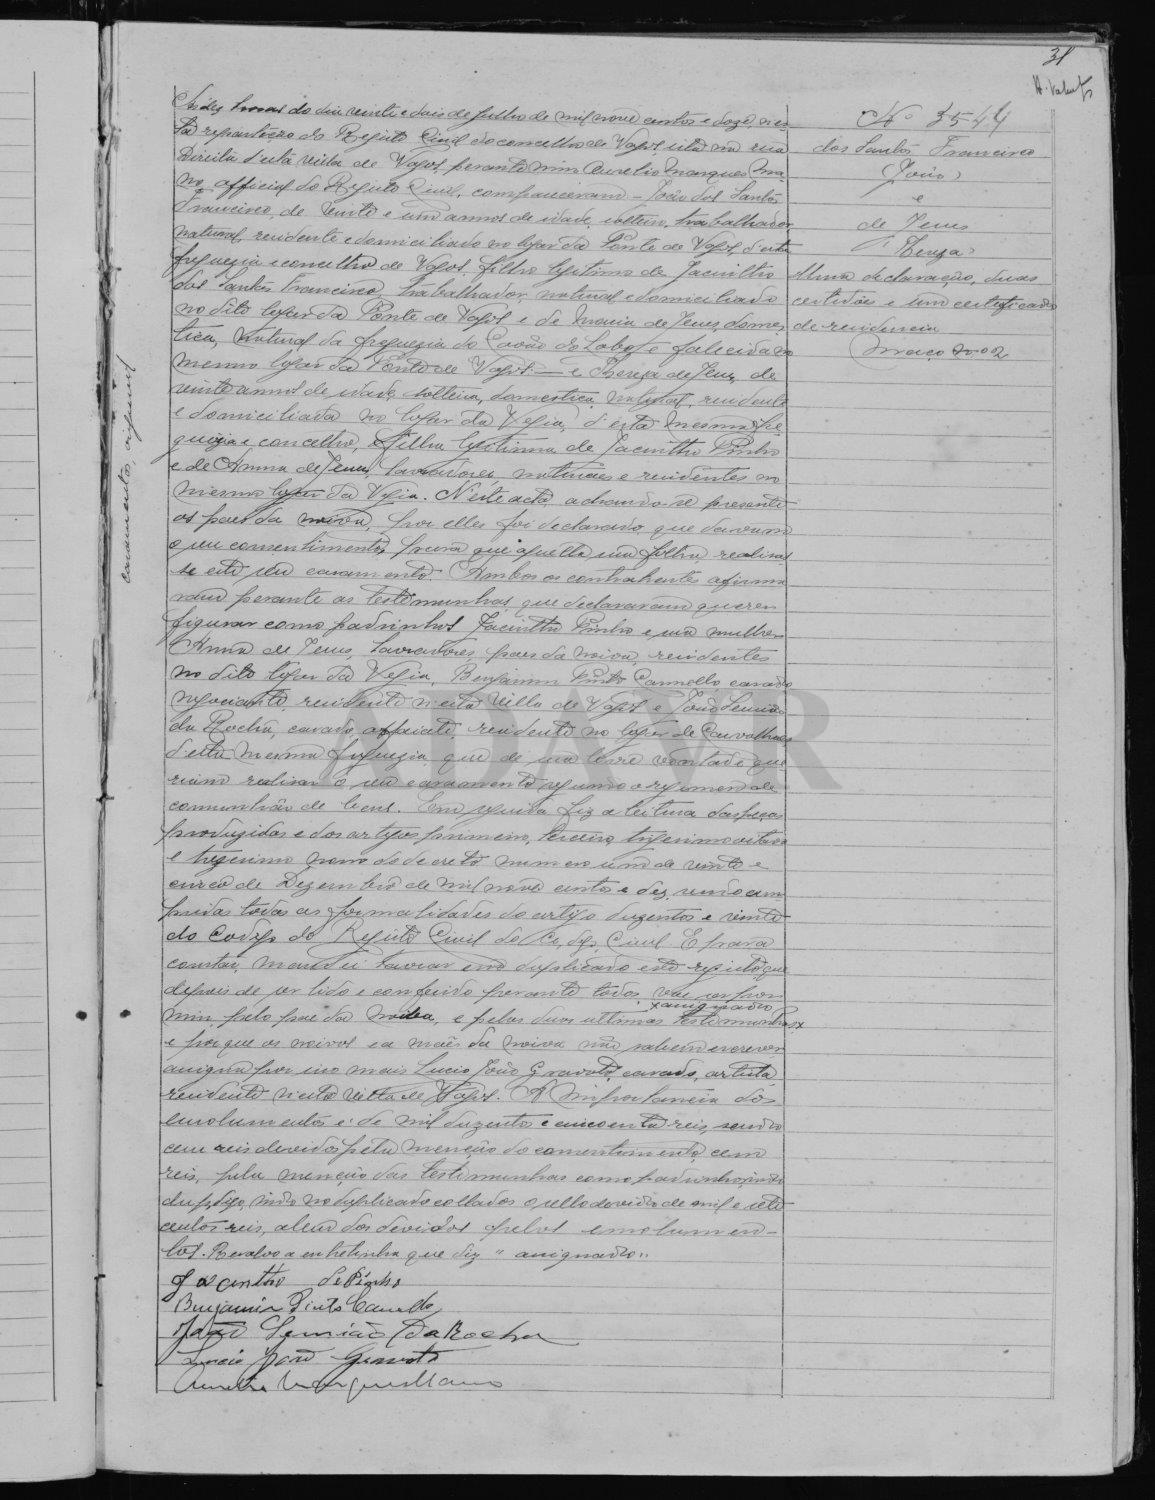 31
Nº 3544
dos Santos Francisco
João
e
de Jesus
Thereza
Uma declaração, duas
certidões e um certificado
de residencia
Maço nº 2
casamento, original
Ás dez horas do dia vinte e dois de julho de mil nove centos e doze, nes-
ta repartição do Registo Civil do concelho de Vagos, sita na rua
Direita d'esta villa de Vagos, perante mim Aurelio Marques Ma-
no, official do Registo Civil, compareceram - João dos Santos
Francisco, de vinte e um annos de idade, solteiro, trabalhador,
natural, residente e domiciliado no logar da Ponte de Vagos, d'esta
freguezia e concelho de Vagos, filho legitimo de Jacintho
dos Santos Francisco, trabalhador, natural e domiciliado
no dito logar da Ponte de Vagos e de Maria de Jesus, domes-
tica, natural da freguezia do Covão do Lobo, e falecida no
mesmo logar da Ponte de Vagos. — e Thereza de Jesus, de
vinte annos de idade, solteira, domestica, natural, residente
e domiciliada no logar da Vigia, d'esta mesma fre-
guezia e concelho, filha legitima de Jacintho Pinho
e de Anna de Jesus, lavradores, naturaes e residentes no
mesmo logar da Vigia. N'este acto, achando-se presente
os paes da noiva, por elles foi declarado que davam
o seu consentimento para que aquella sua filha realisas-
se este seu casamento. Ambos os contrahentes afirma-
ram perante as testemunhas, que declararam querer
figurar como padrinhos, Jacintho Pinho e sua mulher
Anna de Jesus, lavradores, paes da noiva, residentes
no dito logar da Vigia, Benjamim Pinto Camello, casado
negociante, residente n'esta villa de Vagos e João Semião
da Rocha, casado, alfaiate, residente no logar de Carvalhaes
d'esta mesma freguezia, que de sua livre vontade que-
riam realisar o seu casamento segundo o regimen de
communhão de bens. Em seguida fiz a leitura das peças
produzidas e dos artigos primeiro, terceiro, trigesimo oitavo
e trigesimo nono do decreto numero um de vinte e
cinco de Dezembro de mil nove centos e dez, sendo cum-
pridas todas as formalidades do artigo duzentos e vinte
do Codigo do Registo Civil do Codigo Civil. E para
constar, mandei lavrar em duplicado este registo que
depois de ser lido e conferido perante todos, vae ser por
×assignado
mim, pelo pae da noiva, e pelas duas ultimas testemunhas×
e porque os noivos e a mãe da noiva não sabem escrever
assigna por isso mais Lucio João Gravato, casado, artista,
residente n'esta villa de Vagos. A importancia dos
emolumentos é de mil duzentos e cincoenta reis, sendo
cem reis devidos pela menção do consentimento, cem
reis, pela menção das testemunhas como padrinhos, indo
dup, digo, indo no duplicado collados o sello devido de mil e sete
centos reis, alem dos devidos pelos emolumen-
tos. Resalvo a entrelinha que diz "assignado".
Jacintho de Pinho
Benjamin Pinto Camello
João Semião Da Rocha
Lucio João Gravato
Aurelio Marques Mano
ADAVR